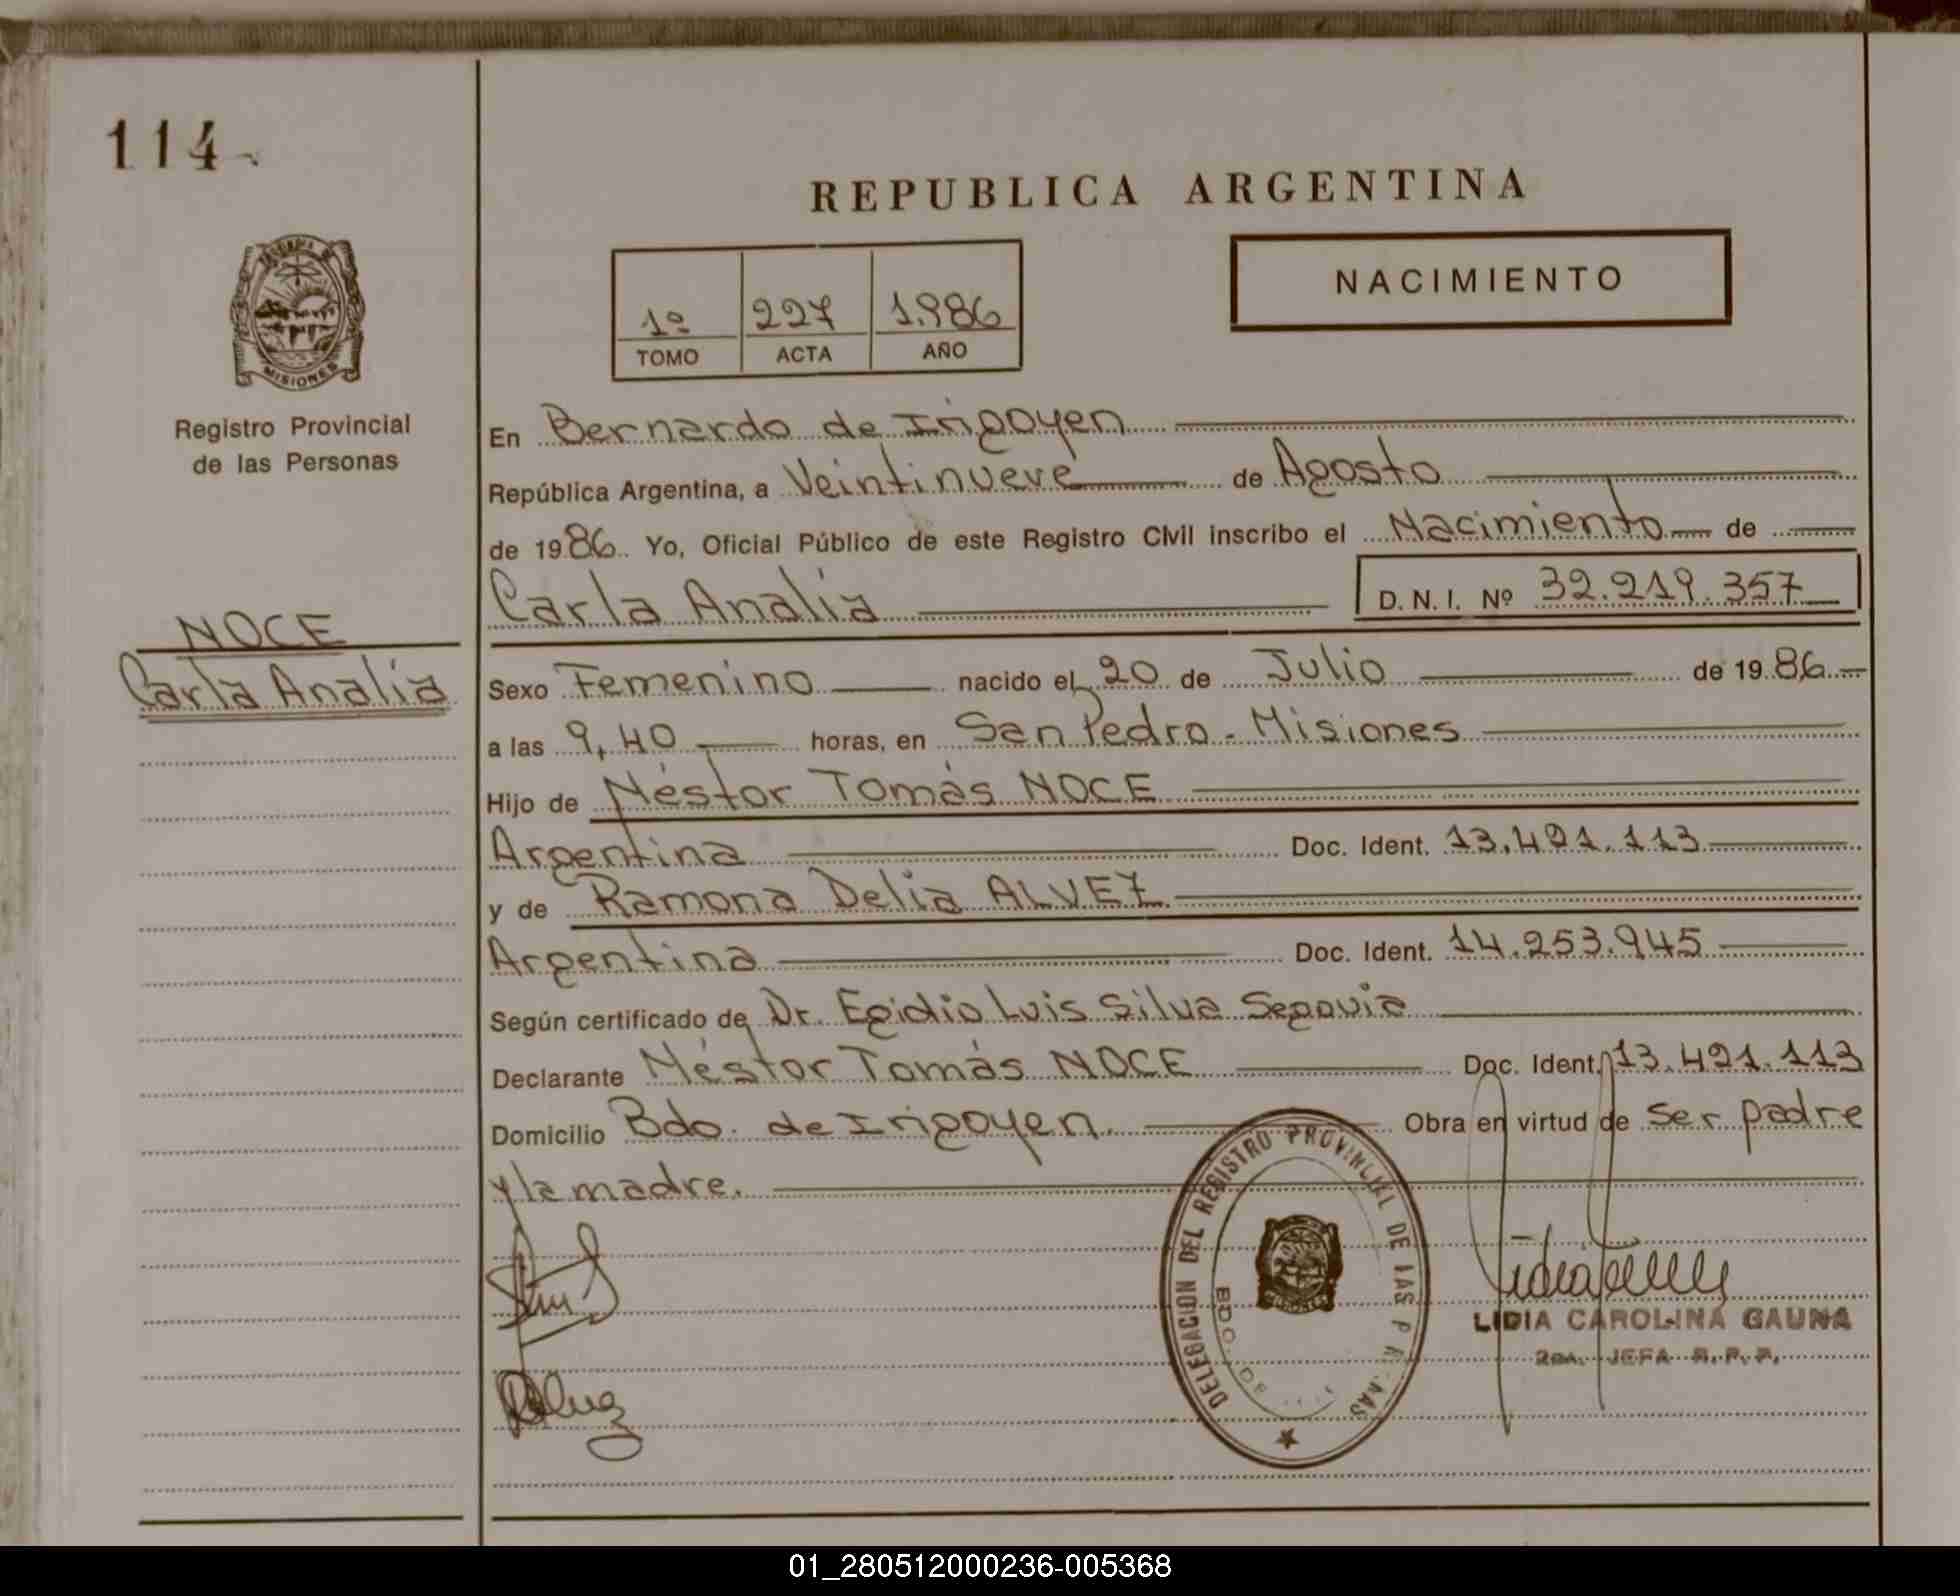 114
REPUBLICA ARGENTINA
NACIMIENTO
1º 227 1.986
TOMO ACTA AÑO
MISIONES
Registro Provincial
de las Personas
NOCE
Carla Analía
En Bernardo de Irigoyen
República Argentina, a Veintinueve de Agosto
de 1986. Yo, Oficial Público de este Registro Civil inscribo el Nacimiento de
Carla Analía D. N. I. Nº 32.219.357
Sexo Femenino nacido el 20 de Julio de 1986.
a las 9,40 horas, en San Pedro - Misiones
Hijo de Néstor Tomás NOCE
Argentina Doc. Ident. 13.421.113
y de Ramona Delia ALVEZ
Argentina Doc. Ident. 14.253.945
Según certificado de Dr. Egidio Luis Silva Segovia
Declarante Néstor Tomás NOCE Doc. Ident. 13.421.113
Domicilio Bdo. de Irigoyen. Obra en virtud de ser padre
y la madre.
DELEGACION DEL REGISTRO PROVINCIAL DE LAS
BDO. DE
LIDIA CAROLINA GAUNA
JEFA R.P.P.
01_280512000236-005368